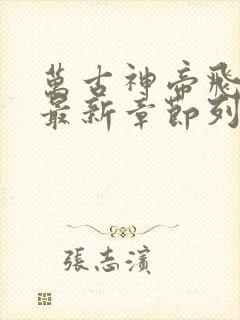 萬古神帝飛
最新章節列
張志濱